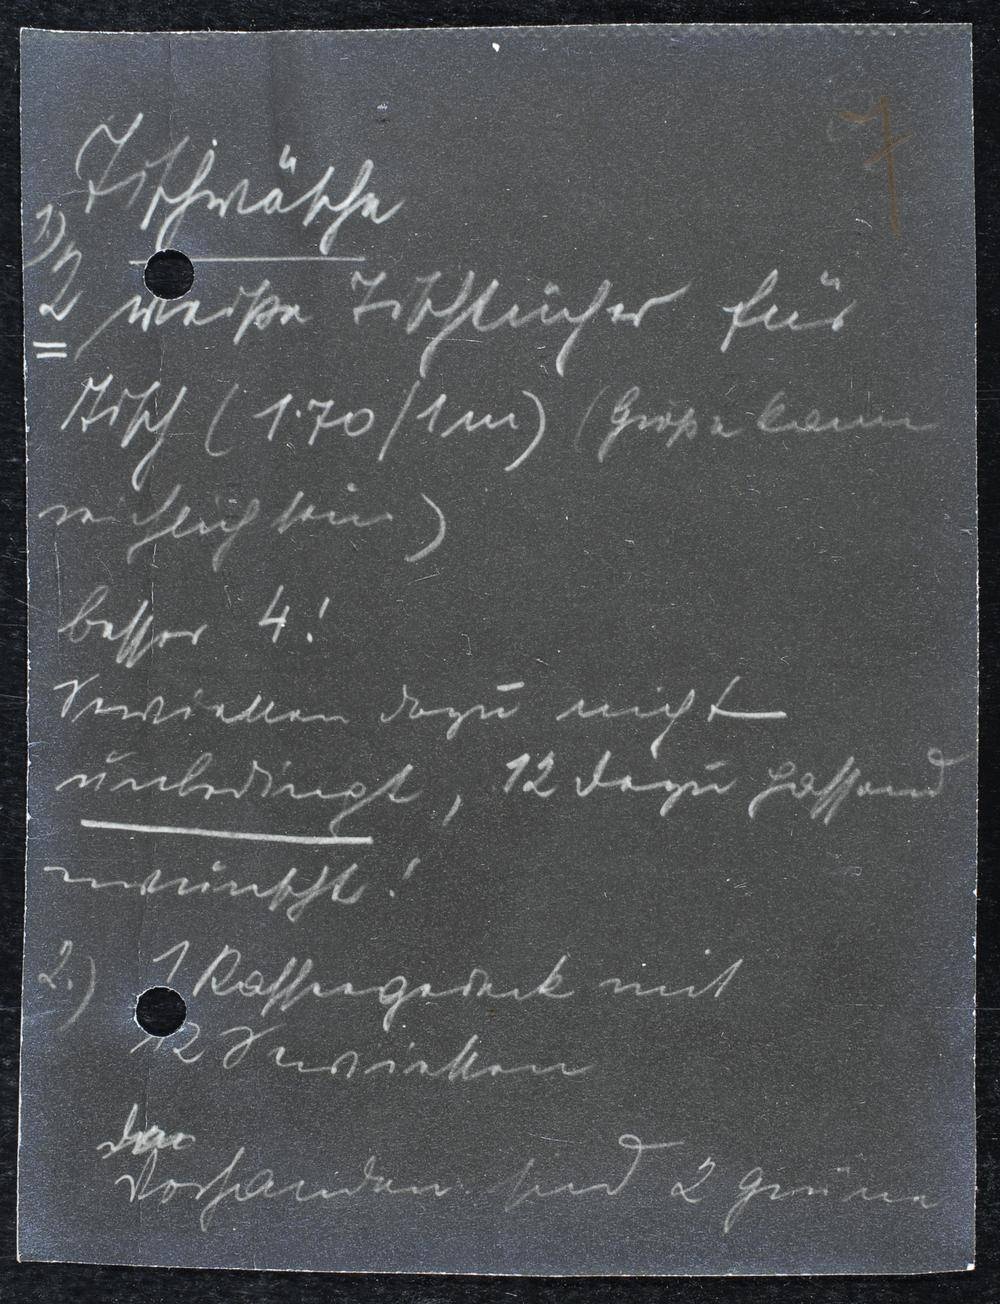 7
Tischwäsche
1) 2 weiße Tischtücher für
Tisch (1·70/1m) (Größe kann
reichlich sein)
besser 4!
Servietten dazu nicht
unbedingt, 12 dazu passend
erwünscht!
2.) 1 Kaffeegedeck mit
12 Servietten
Vorhanden sind 2 grüne